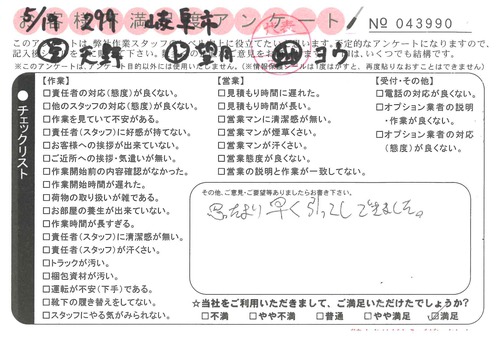 5/14 岐阜市
お客様満足度アンケート
№ 043990
このアンケートは、弊社作業スタッフ
※このアンケートは、アンケート目的以外には使用いたしません。
チェックリスト
【作業】
□責任者の対応(態度)が良くない。
□他のスタッフの対応(態度)が良くない。
□作業を見ていて不安がある。
□責任者(スタッフ)に好感が持てない。
□お客様への挨拶が出来ていない。
□ご近所への挨拶・気遣いが無い。
□作業開始前の内容確認がなかった。
□作業開始時間が遅れた。
□荷物の取り扱いが雑である。
□お部屋の養生が出来ていない。
□作業時間が長すぎる。
□責任者(スタッフ)に清潔感が無い。
□責任者(スタッフ)が汗くさい。
□トラックが汚い。
□梱包資材が汚い。
□運転が不安(下手)である。
□靴下の履き替えをしてない。
□スタッフにやる気がみられない。
【営業】
□見積もり時間に遅れた。
□見積もり時間が長い。
□営業マンに清潔感が無い。
□営業マンが煙草くさい。
□営業マンが汗くさい。
□営業態度が良くない。
□営業の説明と作業が一致してない。
【受付・その他】
□電話の対応が良くない。
□オプション業者の説明
・作業が良くない。
□オプション業者の対応
(態度)が良くない。
その他、ご意見・ご要望等ありましたらお書き下さい。
思ったより早く引っこしできました。
☆当社をご利用いただきまして、ご満足いただけたでしょうか?
□不満 □やや不満 □普通 □やや満足 ☑満足